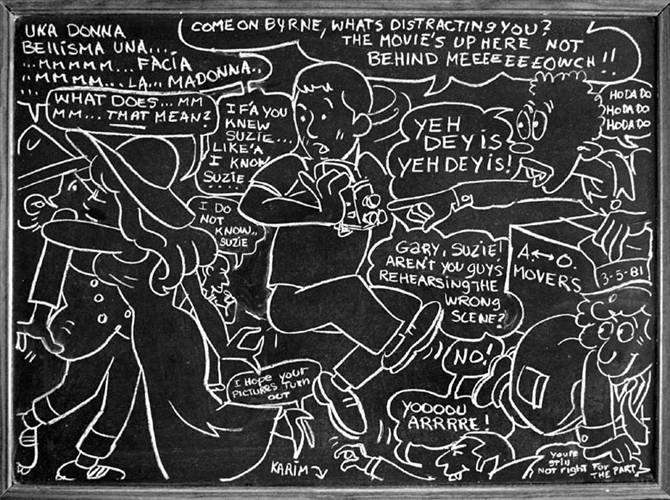 UKA DONNA
BELLÍSMA UNA....
..MMMMM... FACÍA
..MMMM.. LA.. MADONNA..
...
COME ON BYRNE, WHATS DISTRACTING YOU?
THE MOVIE'S UP HERE NOT
BEHIND MEEEEEEEOWCH!!
WHAT DOES... MM
MM... THAT MEAN?
I FA YOU
KNEW
SUZIE...
LIKE'A
I KNOW
SUZIE
.....
YEH
DEY IS
YEH DEY IS!
HODADO
HODADO
HODADO
I DO
NOT
KNOW..
SUZIE
GARY, SUZIE!
AREN'T YOU GUYS
REHEARSING THE
WRONG
SCENE?
A↔O.
MOVERS
3-5-81
NO!
I HOPE YOUR
PICTURES TURN
OUT
YOOOOU
ARRRRE!
KARIM
YOU'RE
STILL
NOT RIGHT FOR
THE PART